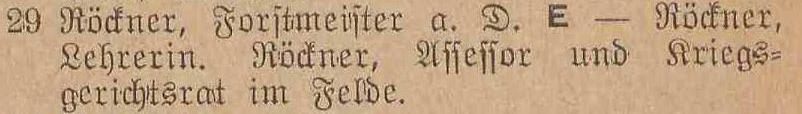 29 Röckner, Forstmeister a. D. E — Röckner,
Lehrerin. Röckner, Assessor und Kriegs-
gerichtsrat im Felde.